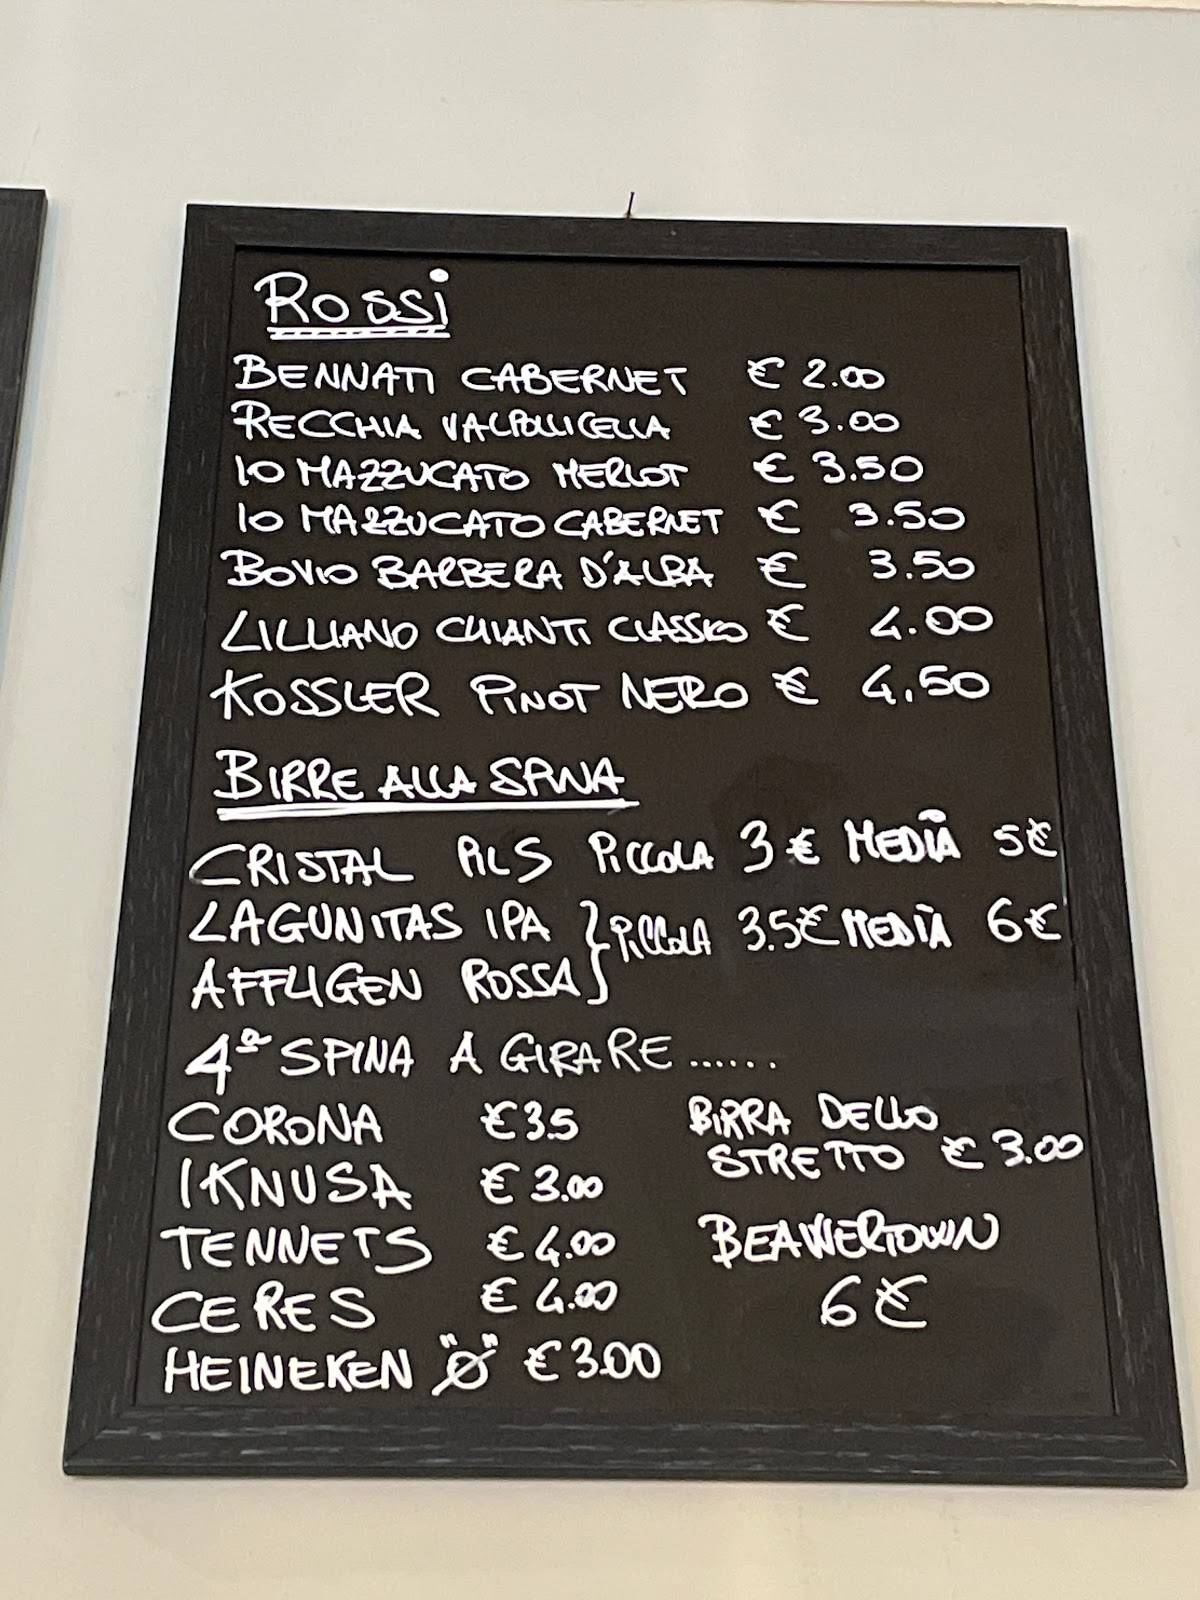 Rossi
BENNATI CABERNET € 2.00
RECCHIA VALPOLLICELLA € 3.00
IO MAZZUCATO MERLOT € 3.50
IO MAZZUCATO CABERNET € 3.50
BOVIO BARBERA D'ALBA € 3.50
LILLIANO CHIANTI CLASSICO € 4.00
KOSSLER PINOT NERO € 4,50
BIRRE ALLA SPINA
CRISTAL PILS PICCOLA 3 € MEDIA 5€
LAGUNITAS IPA
AFFLIGEN ROSSA } PICCOLA 3.5€ MEDIA 6€
4ª SPINA A GIRARE......
CORONA € 3.5
IKNUSA € 3.00
TENNETS € 4.00
CERES € 4.00
HEINEKEN "Ø" € 3.00
BIRRA DELLO
STRETTO € 3.00
BEAWERTOWN
6€